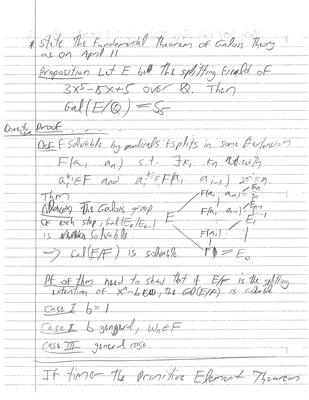 * State the Fundamental Theorem of Galois Theory
as on April 11
Proposition Let E be the splitting field of
3x⁵-15x+5 over Q. Then
Gal(E/Q) = S₅
Proof
Def F solvable by radicals f splits in some extension
F(a₁ aₙ) s.t. ∃k₁ kₙ with
a₁^k₁ ∈ F and aᵢ^kᵢ ∈ F(a₁ aᵢ₋₁) 2≤i≤n.
Thm
The Galois group
of each step, Gal(Eₖ/Eₖ₋₁)
is solvable
E
F(a₁ aₙ) = Eₙ
F(a₁ aₙ₋₁) Eₙ₋₁
F(a₁) E₁
F = E₀
⇒ Gal(E/F) is solvable
Pf of thm need to show that if E/F is the splitting
extension of xⁿ-b, the Gal(E/F) is solvable
Case I b=1
Case II b general, wₙ∈F
Case III general case.
If time - the Primitive Element Theorem